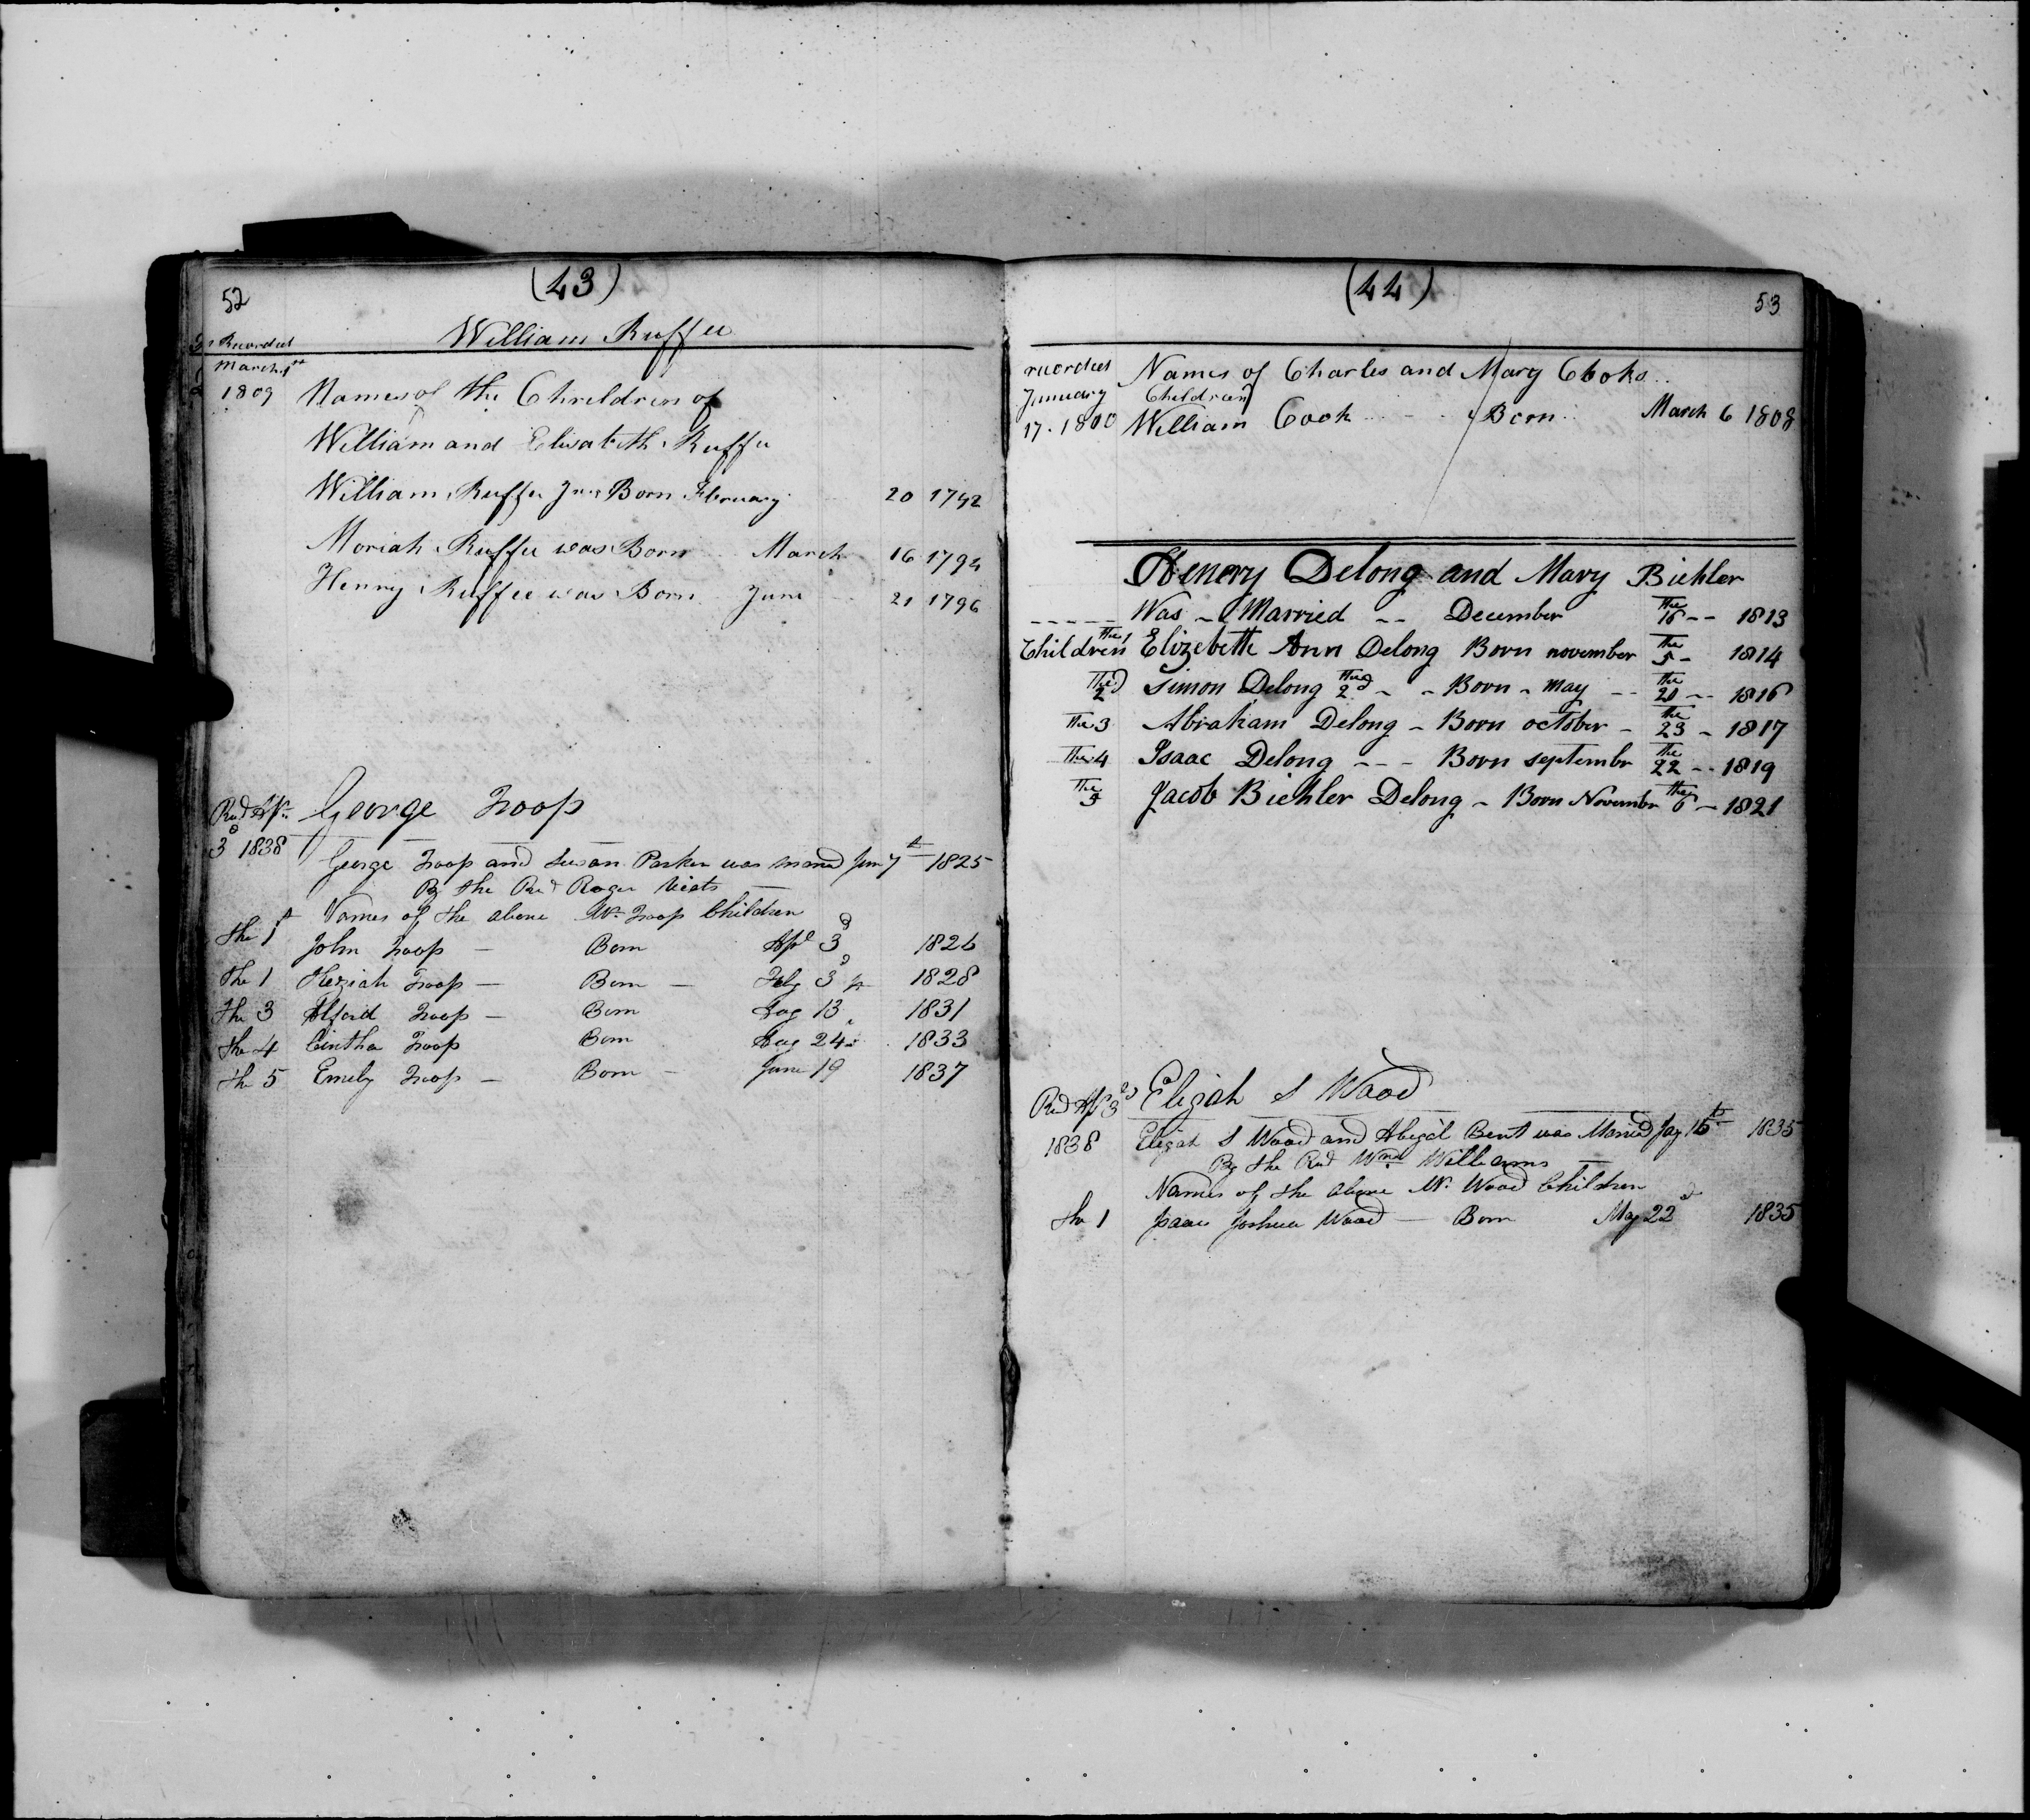 52
(43)
Recorded
William Ruffee
March 1st
1809 Names of the Chreldren of
William and Elisabeth Ruffee
William Ruffee Junr Born February 20 1792
Moriah Ruffee was Born March 16 1794
Henry Ruffee was Born June 21 1796
Recd Apr George Troop
3d 1838
George Troop and Susan Parker was married 7th 1825
By the Revd Roger Viets
Names of the above Mr Troop Children
the 1st John Troop — Born Apl 3d 1826
The 1 Keziah Troop — Born — Feby 3d 1828
the 3 Alford Troop — Born Aug 13 1831
the 4 Cintha Troop Born Aug 24th 1833
the 5 Emely Troop — Born — June 19 1837
(44)
53
recorded Names of Charles and Mary Cooks
January Children
17. 1800 William Cook - - Born March 6 1808
Henery Delong and Mary Biehler
Was - Married -- December the 16 -- 1813
Children the 1 Elizebeth Ann Delong Born november the 5 - 1814
The 2d Simon Delong the 2d - - Born - may -- the 20 -- 1816
The 3 Abraham Delong - Born october - the 23 - 1817
The 4 Isaac Delong --- Born septembr the 22 -- 1819
The 5 Jacob Biehler Delong - Born Novembr the 6 - 1821
Recd Apl 3d Elijah S Wood
1838 Elijah S Wood and Abegal Bent was Married Jay 15th 1835
By the Revd Wm Williams
Names of the above Mr Wood Children
the 1 Isaac Joshua Wood — Born May 22d 1835